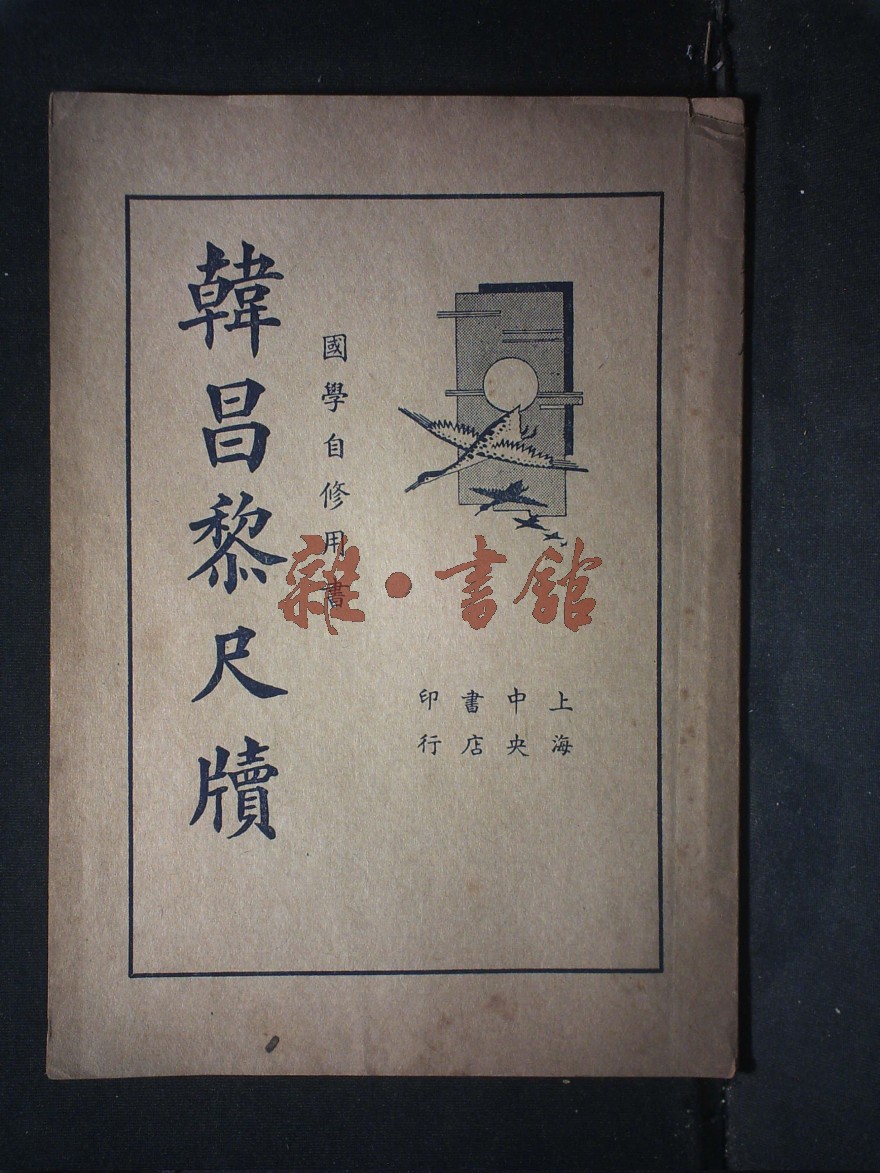 韓昌黎尺牘
國學自修用書
上海
中央
書店
印行
雜·書館